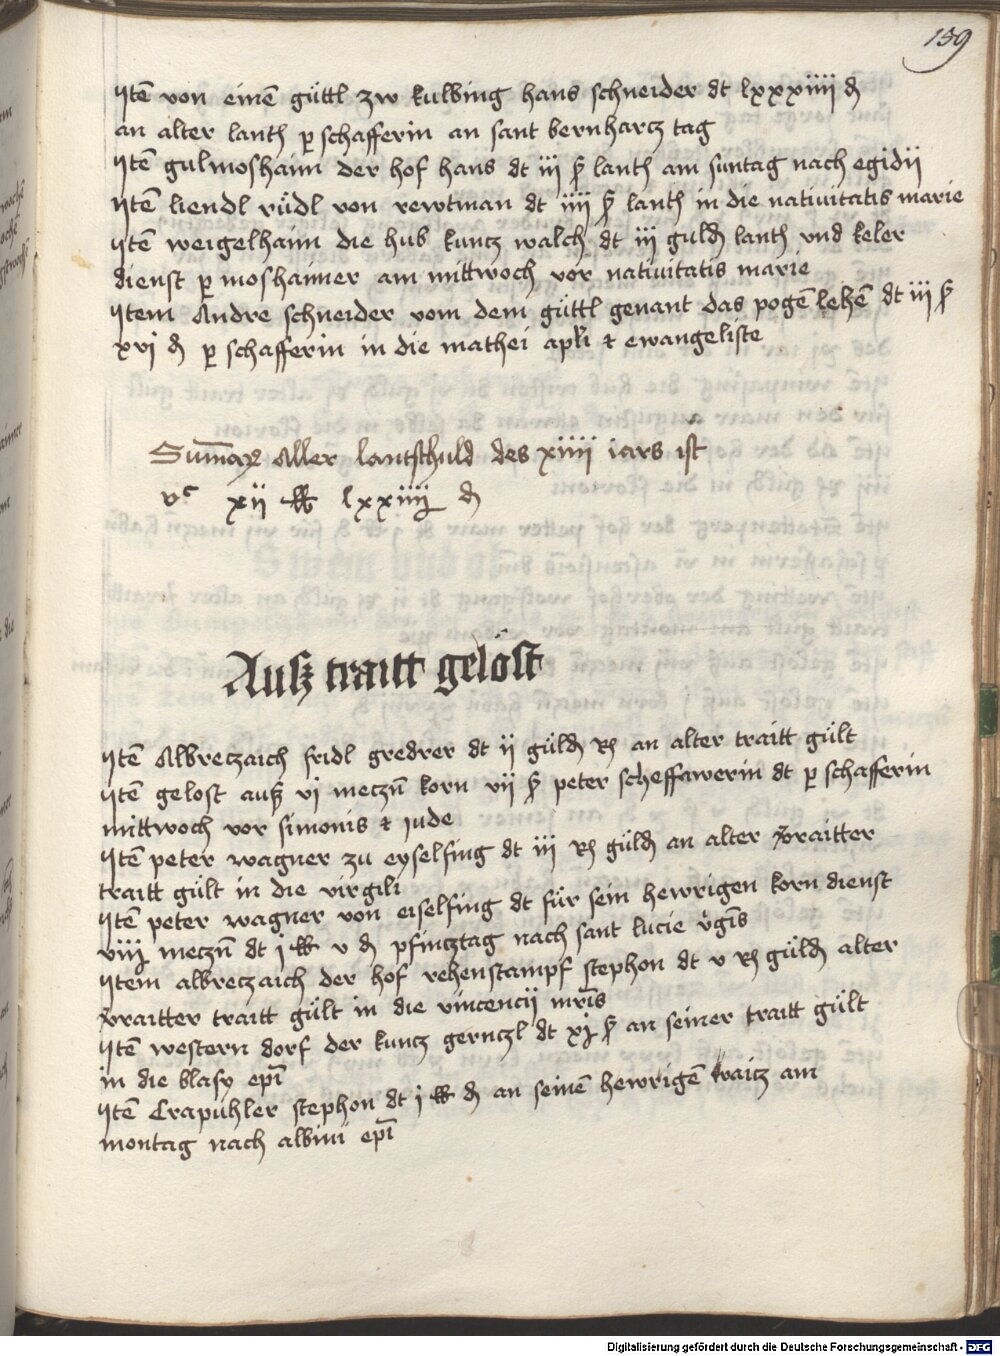 159
Itē von einē güttl zw kulbing hans schneider dt lxxxiiii ₰
an alter lantſ p schafferin an sant bernharcz tag
Itē gulmoshaim der hof hans dt iii ß lantſ am suntag nach egidii
Itē liendl rüdl von rewtman dt iiii ß lantſ in die nativitatis marie
Itē weigelhaim die hub kuncz walch dt iii guld lantſ vnd keler
dienst p moshaimer am mittwoch vor nativitatis marie
Item Andre schneider vom dem güttl genant das pogēlehē dt iii ß
xvi ₰ p schafferin in die mathei apli & ewangeliste
Aller lantschuld des xiiii iars ist
vᶜ xii ℔ lxxiiii ₰
Ausz traitt gelöst
Itē Albreczaich fridl gredrer dt ii güld Rh an alter traitt gült
Itē gelost ausz vi meczn̄ korn vii ß peter scheffawerin dt p schafferin
mittwoch vor simonis & jude
Itē peter wagner zu eyselfing dt iii Rh güld an alter vraitter
traitt gült in die virgili
Itē peter wagner von eiselfing dt für sein hewrigen korn dienst
viii meczn̄ dt i ℔ v ₰ pfincztag nach sant lucie v̄gīs
Item albreczaich der hof rehenstampf stephon dt v Rh güld alter
vraitter traitt gült in die vincencii mr̄is
Itē western dorf der kuncz gernczl dt xi ß an seiner traitt gült
in die blasy epī
Itē Crapühler stephon dt i ℔ ₰ an seinē hewrigē traicz am
montag nach albini epī
Digitalisierung gefördert durch die Deutsche Forschungsgemeinschaft - DFG